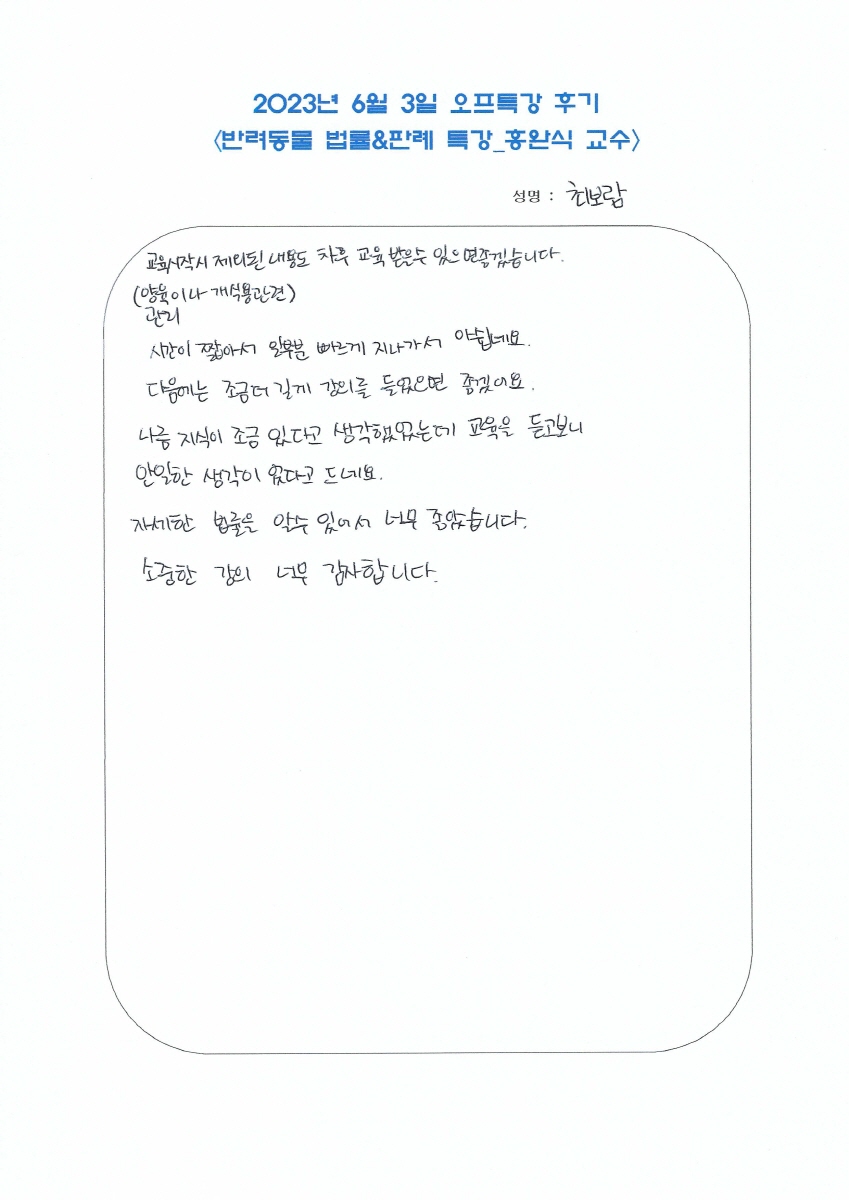 2023년 6월 3일 오프특강 후기
<반려동물 법률&판례 특강_홍완식 교수>
성명 : 최보람
교육시작시 제외된 내용도 차후 교육 받을수 있으면좋겠습니다.
(양육이나 개식용관견)
관리
시간이 짧아서 일부분 빠르게 지나가서 아쉽네요.
다음에는 조금더 길게 강의를 들었으면 좋겠어요.
나름 지식이 조금 있다고 생각했었는데 교육을 듣고보니
안일한 생각이 었다고 드네요.
자세한 법률을 알수 있어서 너무 좋았습니다.
소중한 강의 너무 감사합니다.